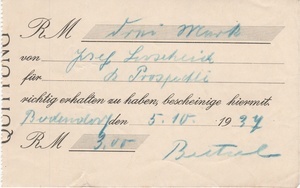 QUITTUNG
RM Drei Mark
von Josef
für 6 Prospekte
richtig erhalten zu haben, bescheinige hiermit.
Bodendorf den 5. IV. 1937
RM 3.00